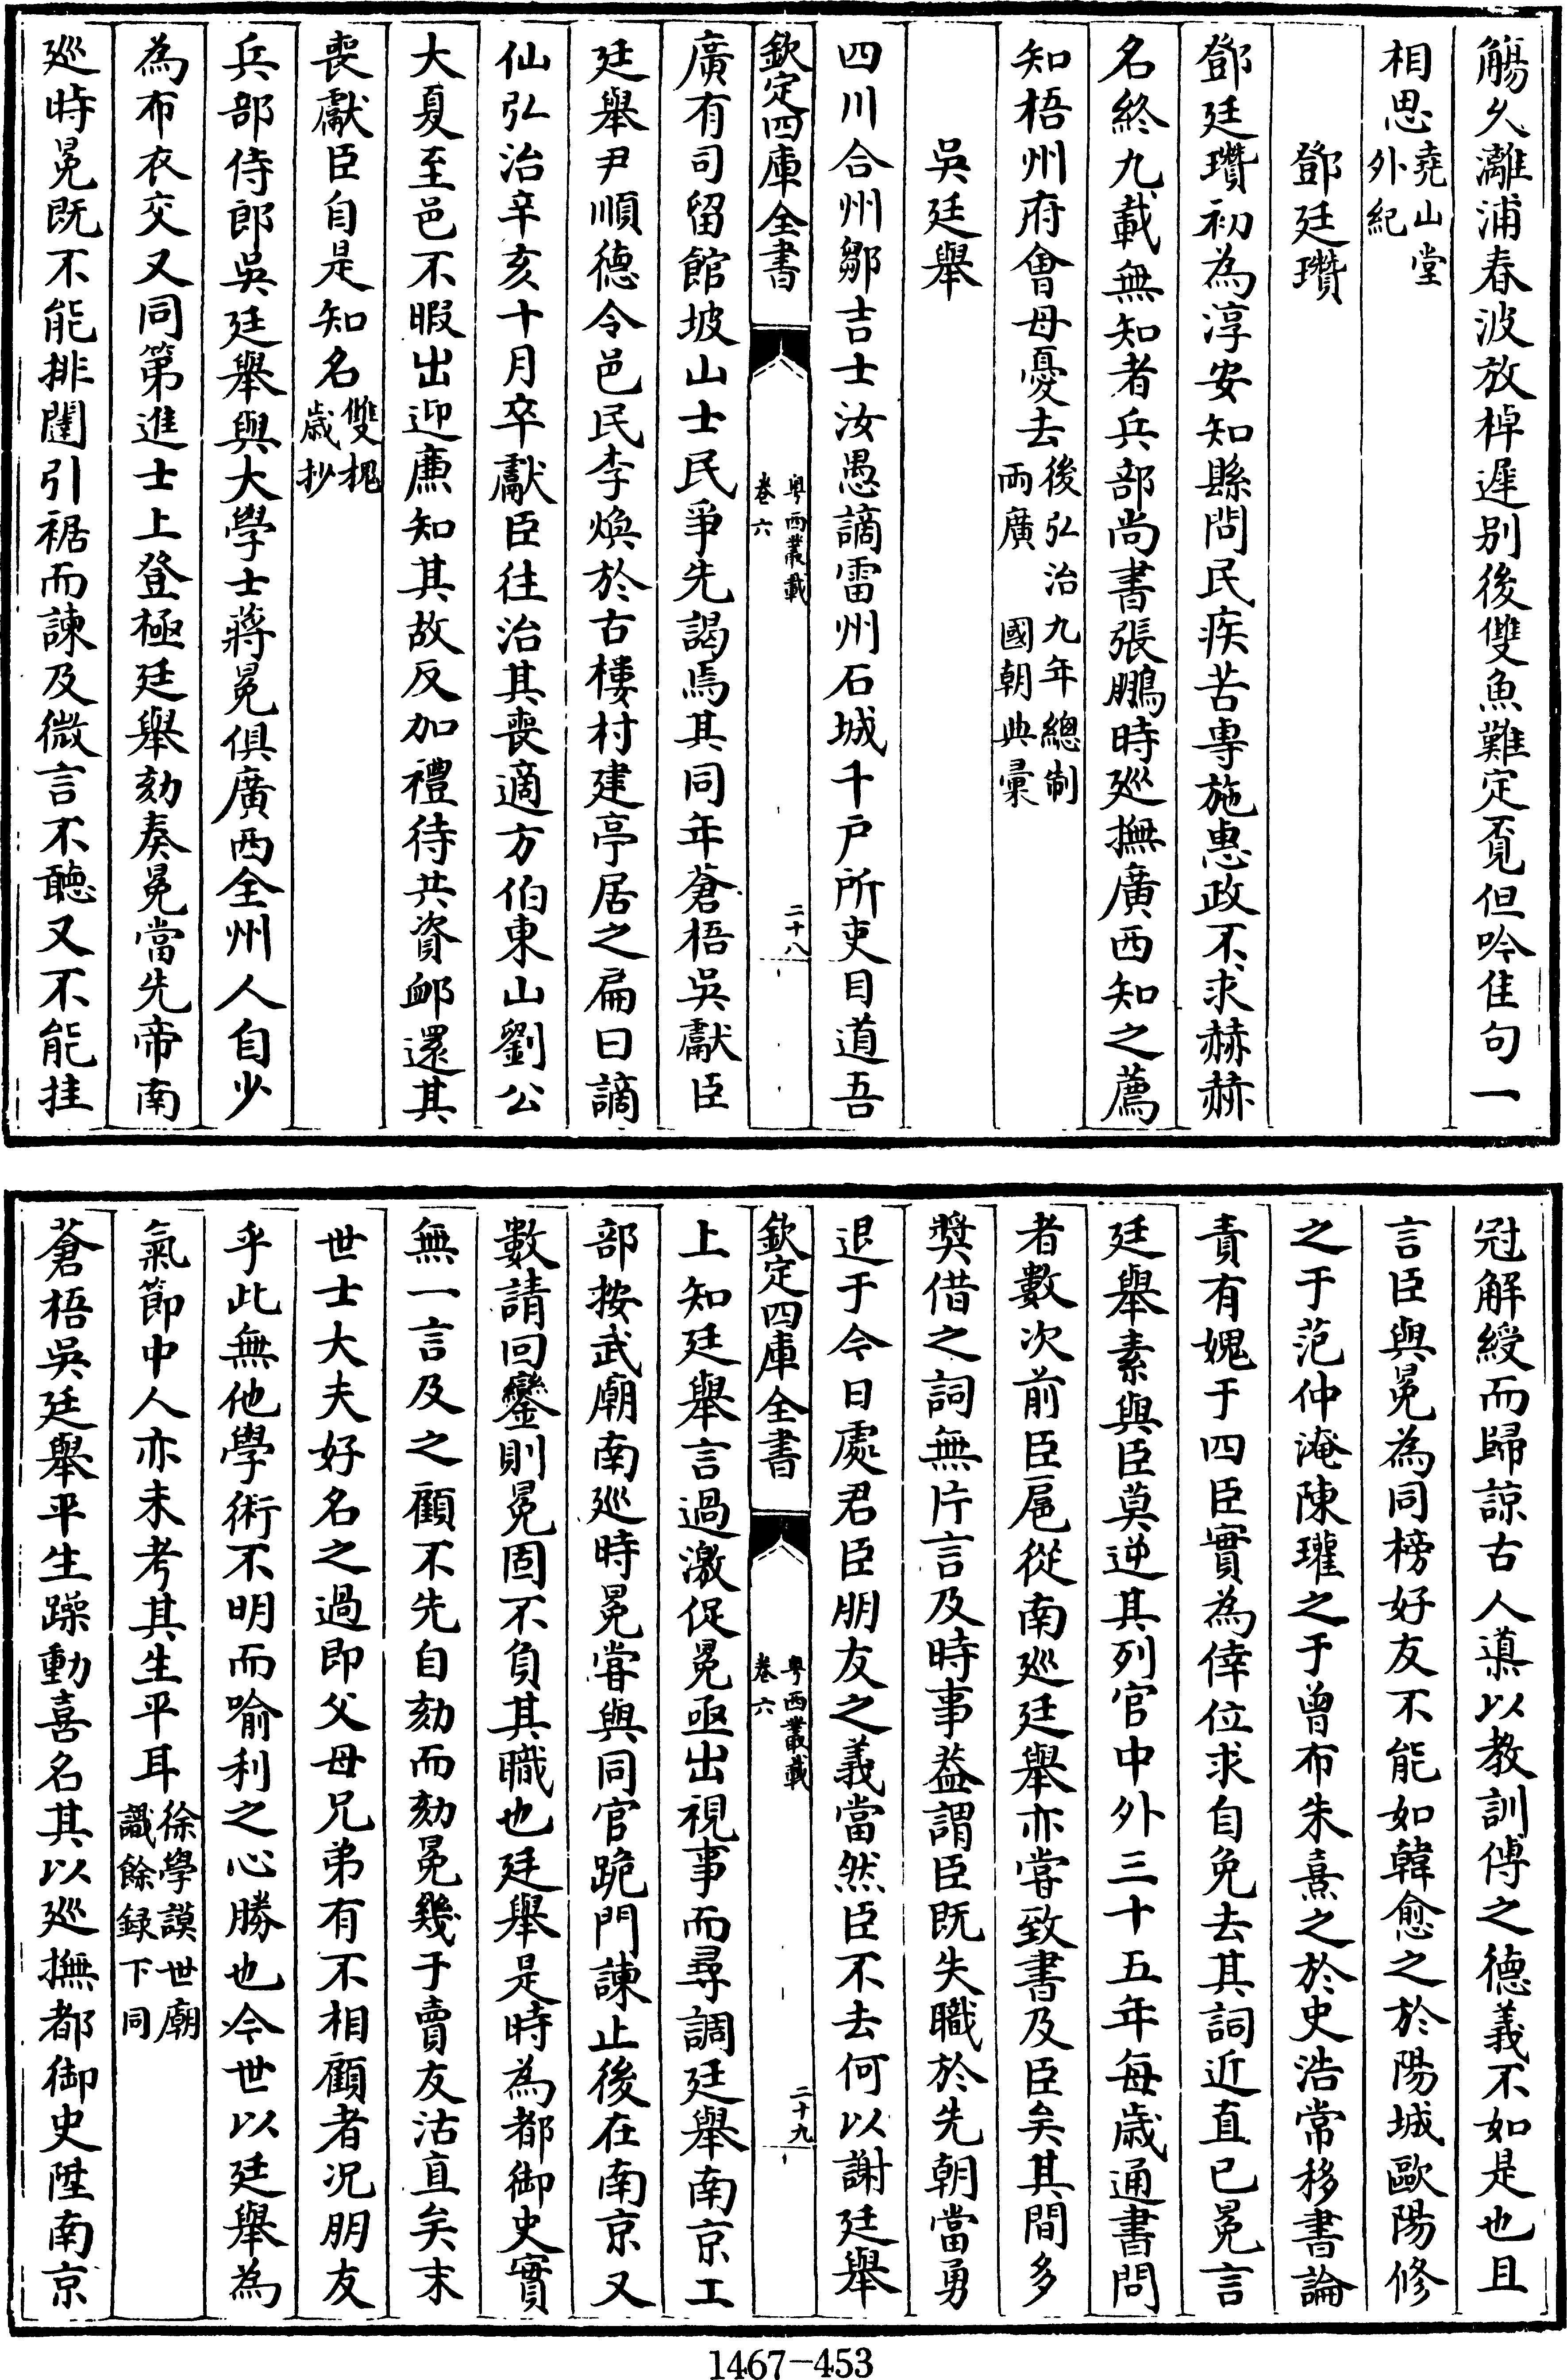 觴久灕浦春波放棹遲别後雙魚難定覔但吟佳句一
相思堯山堂外紀
鄧廷瓚
鄧廷瓚初為淳安知縣問民疾苦專施惠政不求赫赫
名終九載無知者兵部尚書張鵬時巡撫廣西知之薦
知梧州府會母憂去後弘治九年總制兩廣 國朝典彚
吳廷舉
四川合州鄒吉士汝愚謫雷州石城千戶所吏目道吾
欽定四庫全書 粤西叢載 卷六 二十八
廣有司留館坡山士民爭先謁焉其同年蒼梧吳獻臣
廷舉尹順德令邑民李煥於古樓村建亭居之扁曰謫
仙弘治辛亥十月卒獻臣往治其喪適方伯東山劉公
大夏至邑不暇出迎廉知其故反加禮待共資䘏還其
喪獻臣自是知名雙槐歲抄
兵部侍郎吳廷舉與大學士蔣冕俱廣西全州人自少
為布衣交又同第進士上登極廷舉劾奏冕當先帝南
巡時冕既不能排闥引裾而諫及微言不聽又不能挂
冠解綬而歸諒古人導以教訓傅之德義不如是也且
言臣與冕為同榜好友不能如韓愈之於陽城歐陽修
之于范仲淹陳瓘之于曾布朱熹之於史浩常移書論
責有媿于四臣實為倖位求自免去其詞近直已冕言
廷舉素與臣莫逆其列官中外三十五年每歲通書問
者數次前臣扈從南巡廷舉亦嘗致書及臣矣其間多
奬借之詞無片言及時事益謂臣既失職於先朝當勇
退于今日處君臣朋友之義當然臣不去何以謝廷舉
欽定四庫全書 粤西叢載 卷六 二十九
上知廷舉言過激促冕亟出視事而尋調廷舉南京工
部按武廟南巡時冕嘗與同官跪門諫止後在南京又
數請回鑾則冕固不負其職也廷舉是時為都御史實
無一言及之顧不先自劾而劾冕幾于賣友沽直矣末
世士大夫好名之過即父母兄弟有不相顧者况朋友
乎此無他學術不明而喻利之心勝也今世以廷舉為
氣節中人亦未考其生平耳徐學謨世廟識餘録下同
蒼梧吳廷舉平生躁動喜名其以巡撫都御史陞南京
1467-453